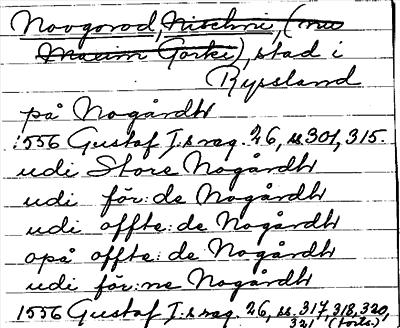 Novgorod, Nischni, (nu
Maxim Gorki), stad i
Ryssland
på Nogårdh
1556 Gustaf I:s reg. 26, ss. 301, 315.
udi Store Nogårdh
udi för:de Nogårdh
udi offte:de Nogårdh
opå offte:de Nogårdh
udi för:ne Nogårdh
1556 Gustaf I:s reg. 26, ss. 317, 318, 320,
321 (forts.)